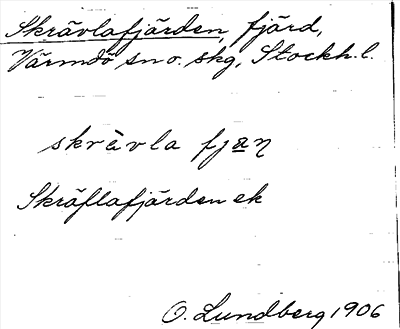 Skrävlafjärden, fjärd,
Värmdö sn o. skg, Stockh. l.
skrävla fjan
Skräflafjärden ek
O. Lundberg 1906